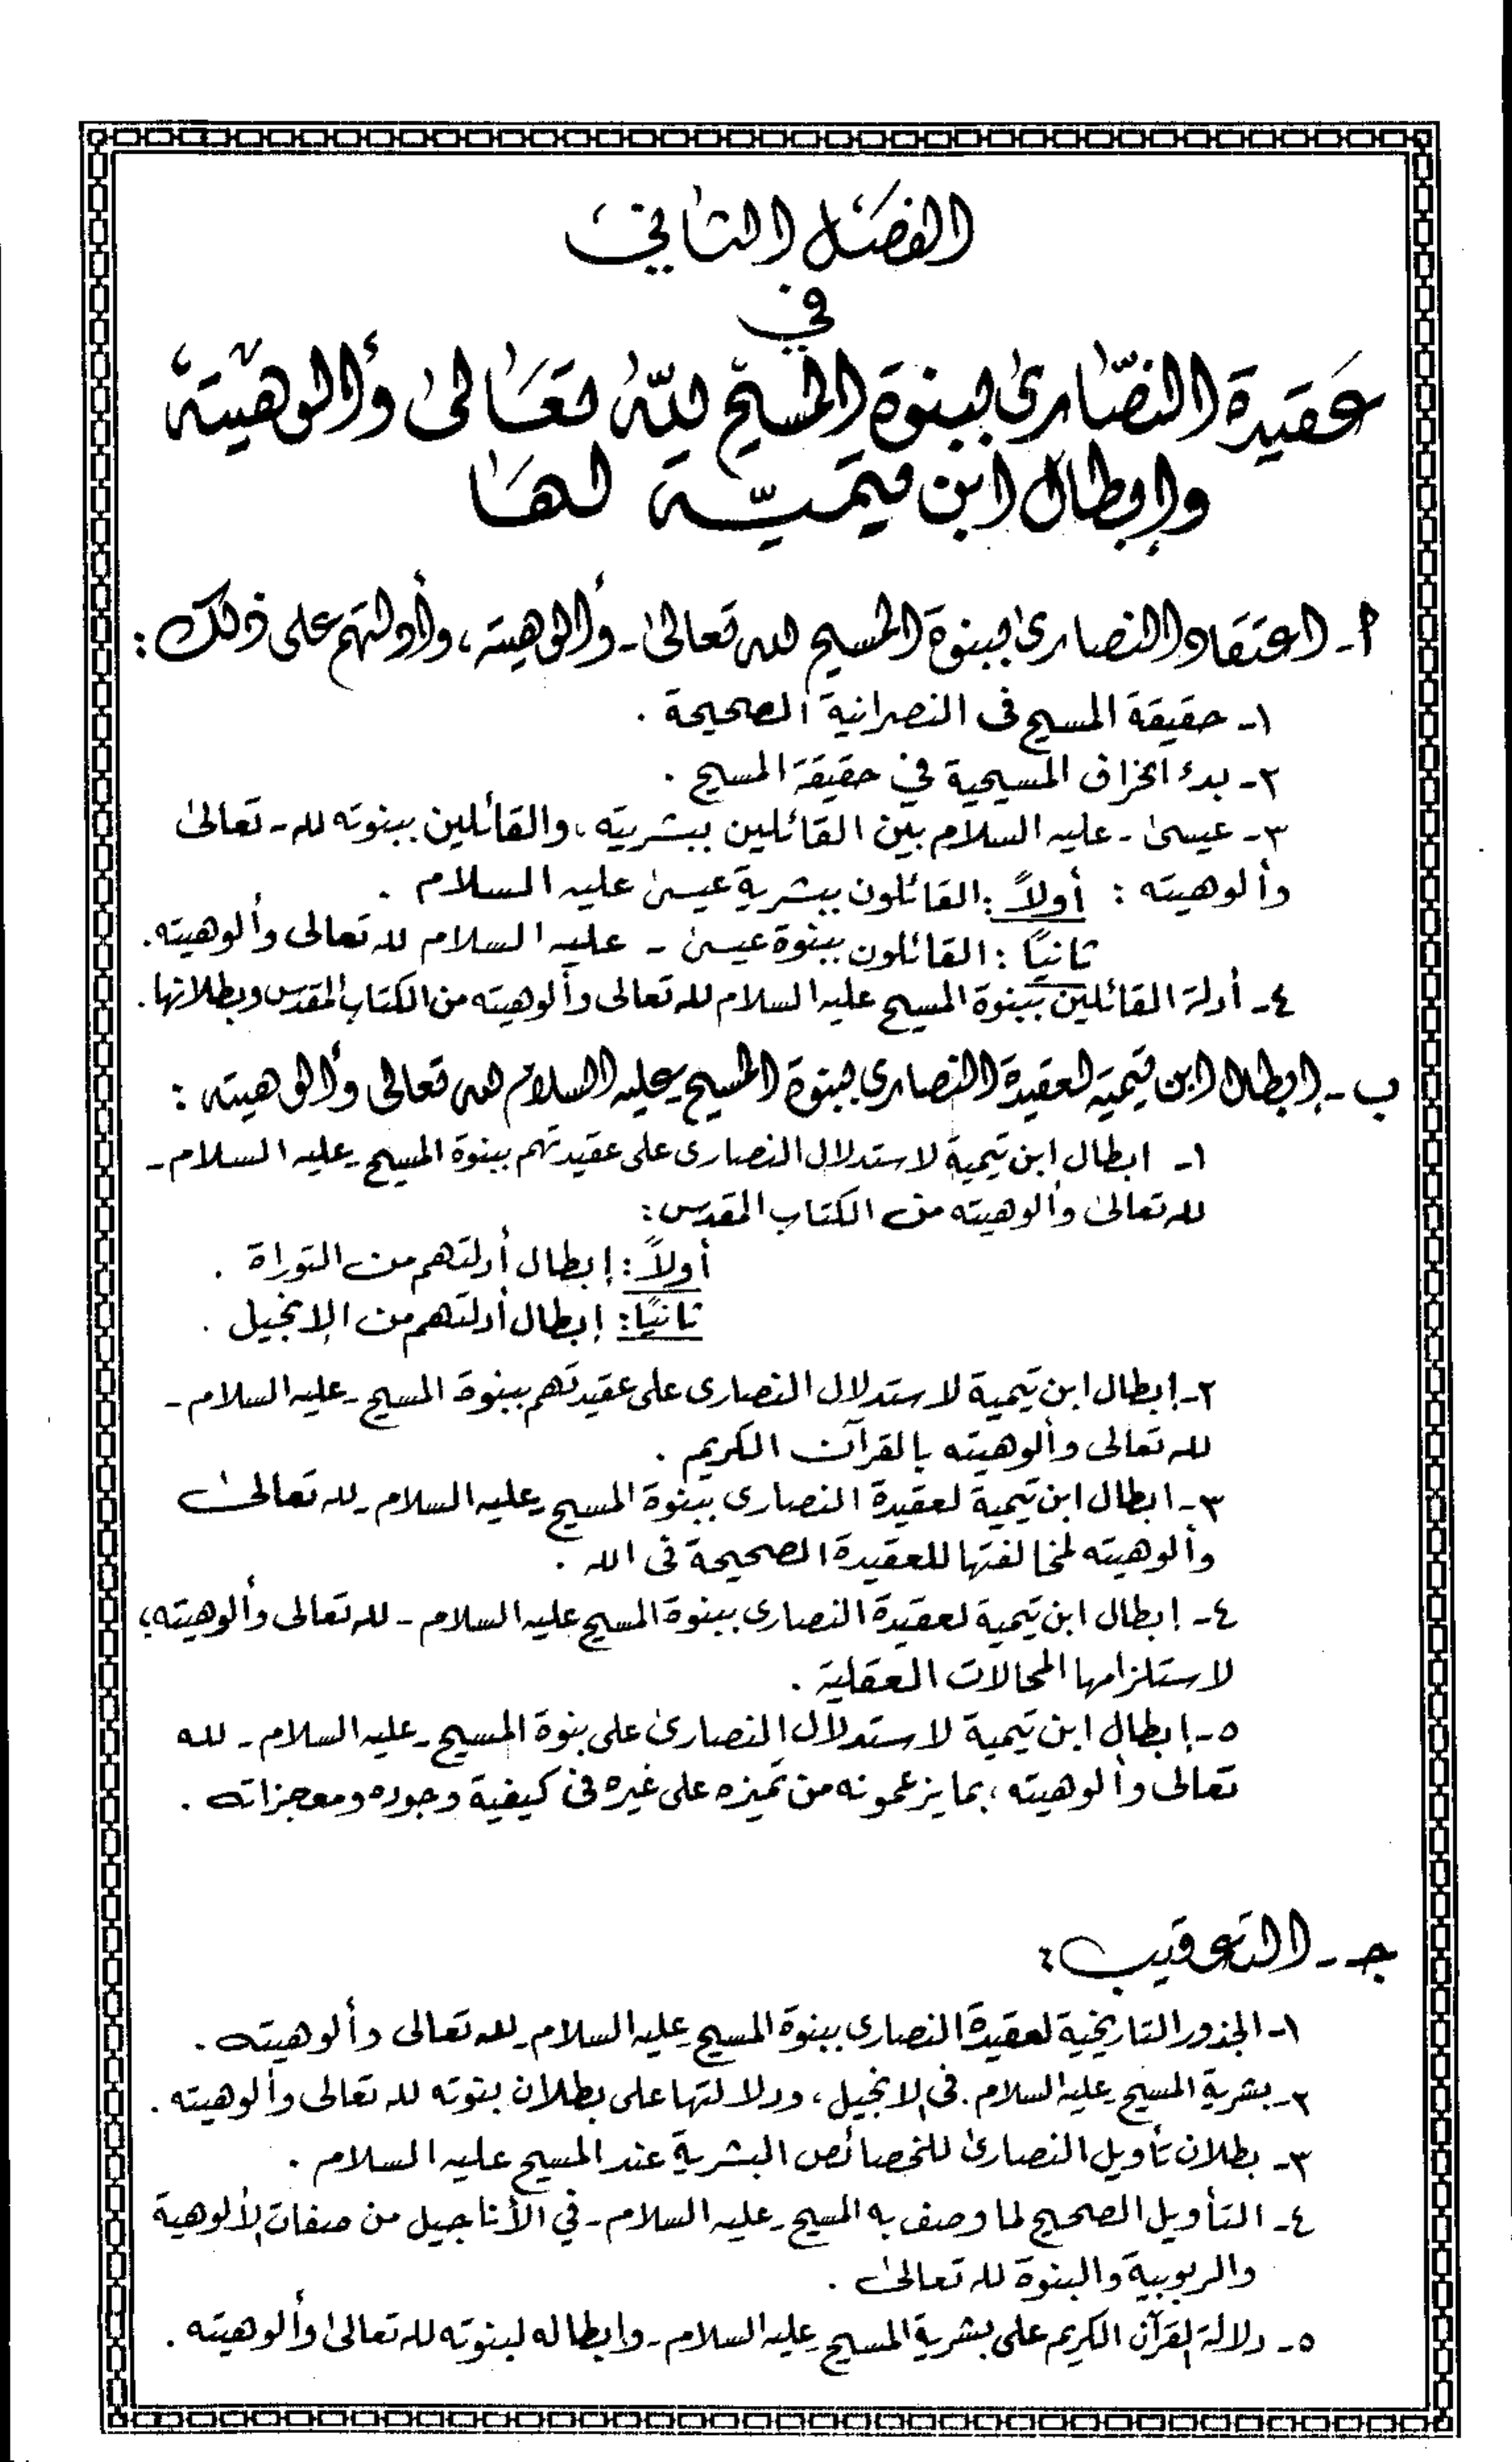 الفصل الثاني
في
عقيدة النصّارىٰ ببنوة المسيح للّه تعَالىٰ وألوهيته
وإبطال ابن تيميّة لهَا
أ - اعتقاد النصارىٰ ببنوة المسيح لله تعالىٰ - وألوهيته، وأدلتهم على ذلك :
١- حقيقة المسيح فى النصرانية الصحيحة .
٢- بدء انحراف المسيحية في حقيقة المسيح .
٣- عيسىٰ - عليه السلام بين القائلين ببشريته، والقائلين ببنوته لله - تعالىٰ
وألوهيته : أولاً : القائلون ببشرية عيسىٰ عليه السلام .
ثانيًا : القائلون ببنوة عيسىٰ - عليه السلام لله تعالى وألوهيته.
٤- أدلة القائلين ببنوة المسيح عليه السلام لله تعالى وألوهيته من الكتاب المقدس وبطلانها.
ب - إبطال ابن تيمية لعقيدة النصارى ببنوة المسيح - عليه السلام لله تعالى وألوهيته :
١- ابطال ابن تيمية لاستدلال النصارى على عقيدتهم ببنوة المسيح - عليه السلام -
لله تعالىٰ وألوهيته من الكتاب المقدس :
أولاً : إبطال أدلتهم من التوراة .
ثانيًا : إبطال أدلتهم من الإنجيل .
٢- إبطال ابن تيمية لاستدلال النصارى على عقيدتهم ببنوة المسيح - عليه السلام -
لله تعالى وألوهيته بالقرآن الكريم .
٣- ابطال ابن تيمية لعقيدة النصارى ببنوة المسيح - عليه السلام - لله تعالىٰ
وألوهيته لمخالفتها للعقيدة الصحيحة فى الله .
٤- إبطال ابن تيمية لعقيدة النصارى ببنوة المسيح عليه السلام - لله تعالى وألوهيته؛
لاستلزامها المحالات العقلية .
٥- إبطال ابن تيمية لاستدلال النصارىٰ على بنوة المسيح - عليه السلام - لله
تعالى وألوهيته ؛ بما يزعمونه من تميزه على غيره فى كيفية وجوده ومعجزاته .
جـ - التعقيب :
١- الجذور التاريخية لعقيدة النصارى ببنوة المسيح - عليه السلام - لله تعالى وألوهيته .
٢- بشرية المسيح - عليه السلام . في الإنجيل ، ودلالتها على بطلان بنوته لله تعالى وألوهيته .
٣- بطلان تأويل النصارىٰ للخصائص البشرية عند المسيح عليه السلام .
٤- التأويل الصحيح لما وصف به المسيح - عليه السلام - في الأناجيل من صفات الألوهية
والربوبية والبنوة لله تعالىٰ .
٥- دلالة القرآن الكريم على بشرية المسيح - عليه السلام - وإبطاله لبنوته لله تعالىٰ وألوهيته .